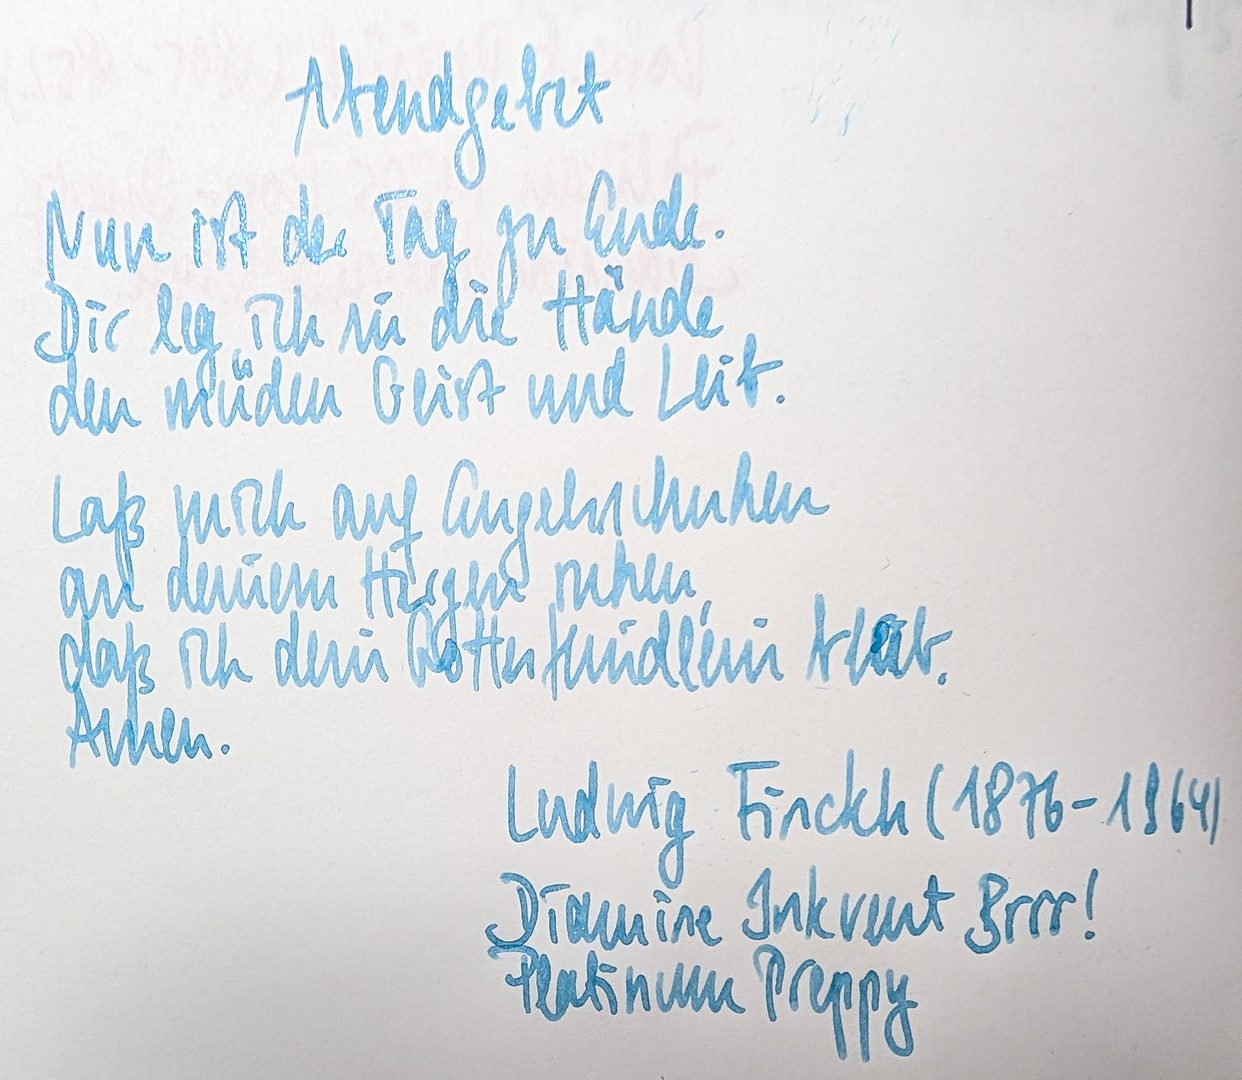 Abendgebet
Nun ist der Tag zu Ende.
Dir leg ich in die Hände
den müden Geist und Leib.
Laß mich auf Engelsschuhen
an deinem Herzen ruhen,
daß ich dein Gottesfreundlein bleib.
Amen.
Ludwig Finckh (1876-1964)
Diamine Inkvent Brrr!
Platinum Preppy